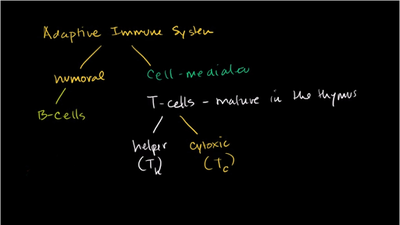 Adaptive Immune System
humoral
Cell-mediated
T-cells - mature in the thymus
B-cells
helper
cytoxic
(Th)
(Tc)